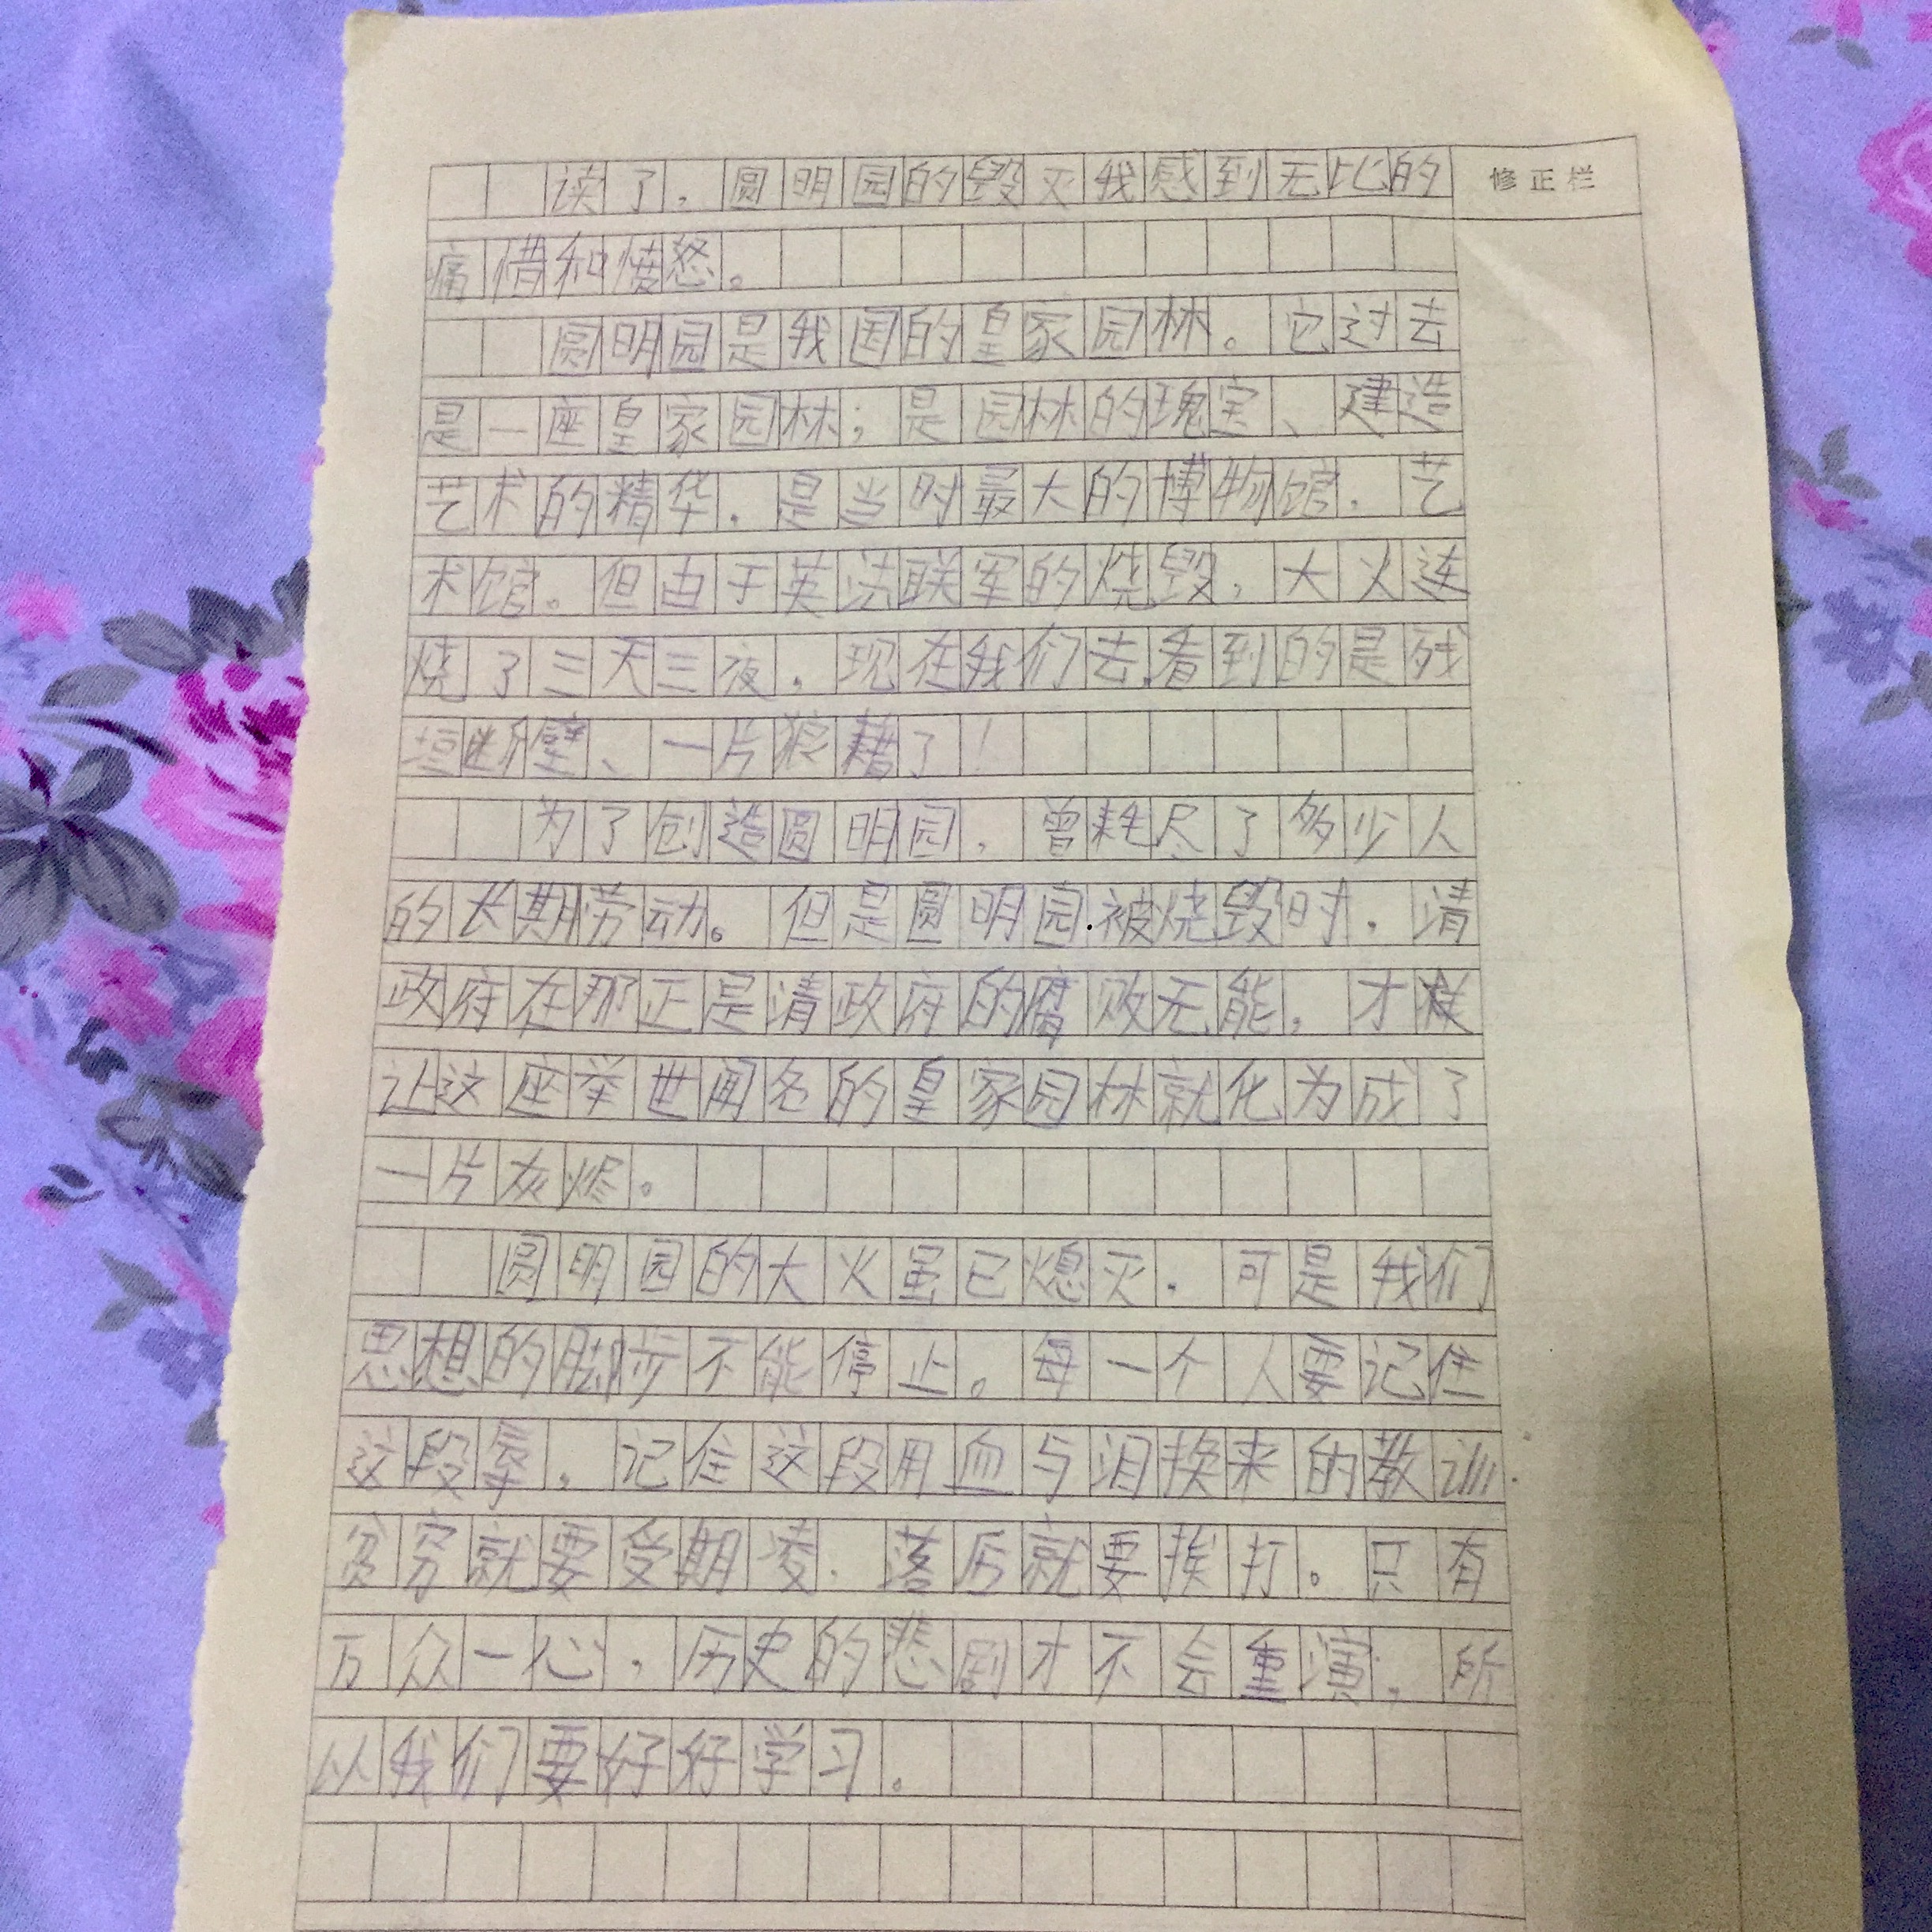 读了，圆明园的毁灭我感到无比的
修正栏
痛惜和愤怒。
圆明园是我国的皇家园林。它过去
是一座皇家园林；是园林的瑰宝、建造
艺术的精华．是当时最大的博物馆．艺
术馆。但由于英法联军的烧毁，大火连
烧了三天三夜．现在我们去看到的是残
垣断壁、一片狼藉了！
为了创造圆明园，曾耗尽了多少人
的长期劳动。但是圆明园被烧毁时．清
政府在那正是清政府的腐败无能，才
让这座举世闻名的皇家园林就化为成了
一片灰烬。
圆明园的大火虽已熄灭．可是我们
思想的脚步不能停止。每一个人要记住
这段，记住这段用血与泪换来的教训．
贫穷就要受期凌．落后就要挨打。只有
万众一心，历史的悲剧才不会重演，所
以我们要好好学习。